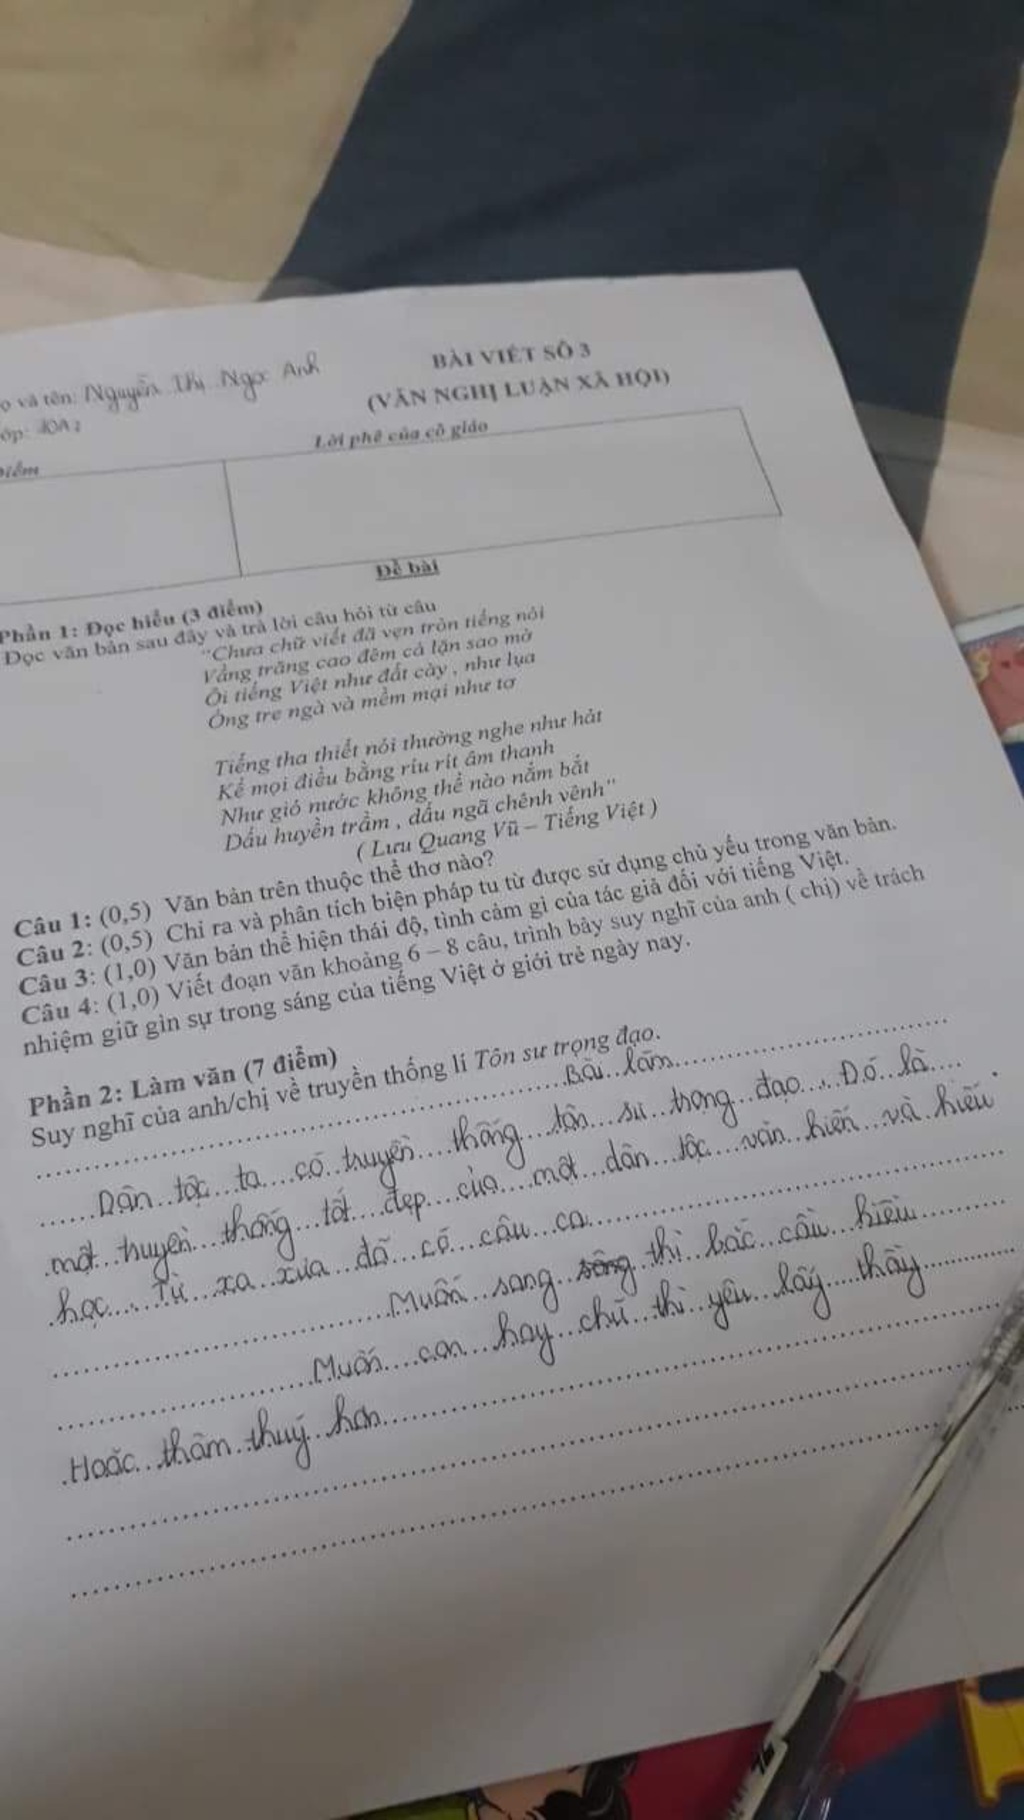 ọ và tên: Nguyễn Thị Ngọc Anh
BÀI VIẾT SỐ 3
(VĂN NGHỊ LUẬN XÃ HỘI)
ớp: 10A2
Điểm
Lời phê của cô giáo
Đề bài
Phần 1: Đọc hiểu (3 điểm)
Đọc văn bản sau đây và trả lời câu hỏi từ câu
"Chưa chữ viết đã vẹn tròn tiếng nói
Vầng trăng cao đêm cả lặn sao mờ
Ôi tiếng Việt như đất cày , như lụa
Óng tre ngà và mềm mại như tơ
Tiếng tha thiết nói thường nghe như hát
Kể mọi điều bằng ríu rít âm thanh
Như gió nước không thể nào nắm bắt
Dấu huyền trầm , dấu ngã chênh vênh"
( Lưu Quang Vũ – Tiếng Việt )
Câu 1: (0,5) Văn bản trên thuộc thể thơ nào?
Câu 2: (0,5) Chỉ ra và phân tích biện pháp tu từ được sử dụng chủ yếu trong văn bản.
Câu 3: (1,0) Văn bản thể hiện thái độ, tình cảm gì của tác giả đối với tiếng Việt.
Câu 4: (1,0) Viết đoạn văn khoảng 6 – 8 câu, trình bày suy nghĩ của anh ( chị) về trách
nhiệm giữ gìn sự trong sáng của tiếng Việt ở giới trẻ ngày nay.
Phần 2: Làm văn (7 điểm)
Suy nghĩ của anh/chị về truyền thống lí Tôn sư trọng đạo.
Bài làm
Dân tộc ta có truyền thống tôn sư trọng đạo. Đó là
một truyền thống tốt đẹp của một dân tộc văn hiến và hiếu
học. Từ xa xưa đã có câu ca
Muốn sang thì bắc cầu kiều
Muốn con hay chữ thì yêu lấy thầy
Hoặc thâm thuý hơn